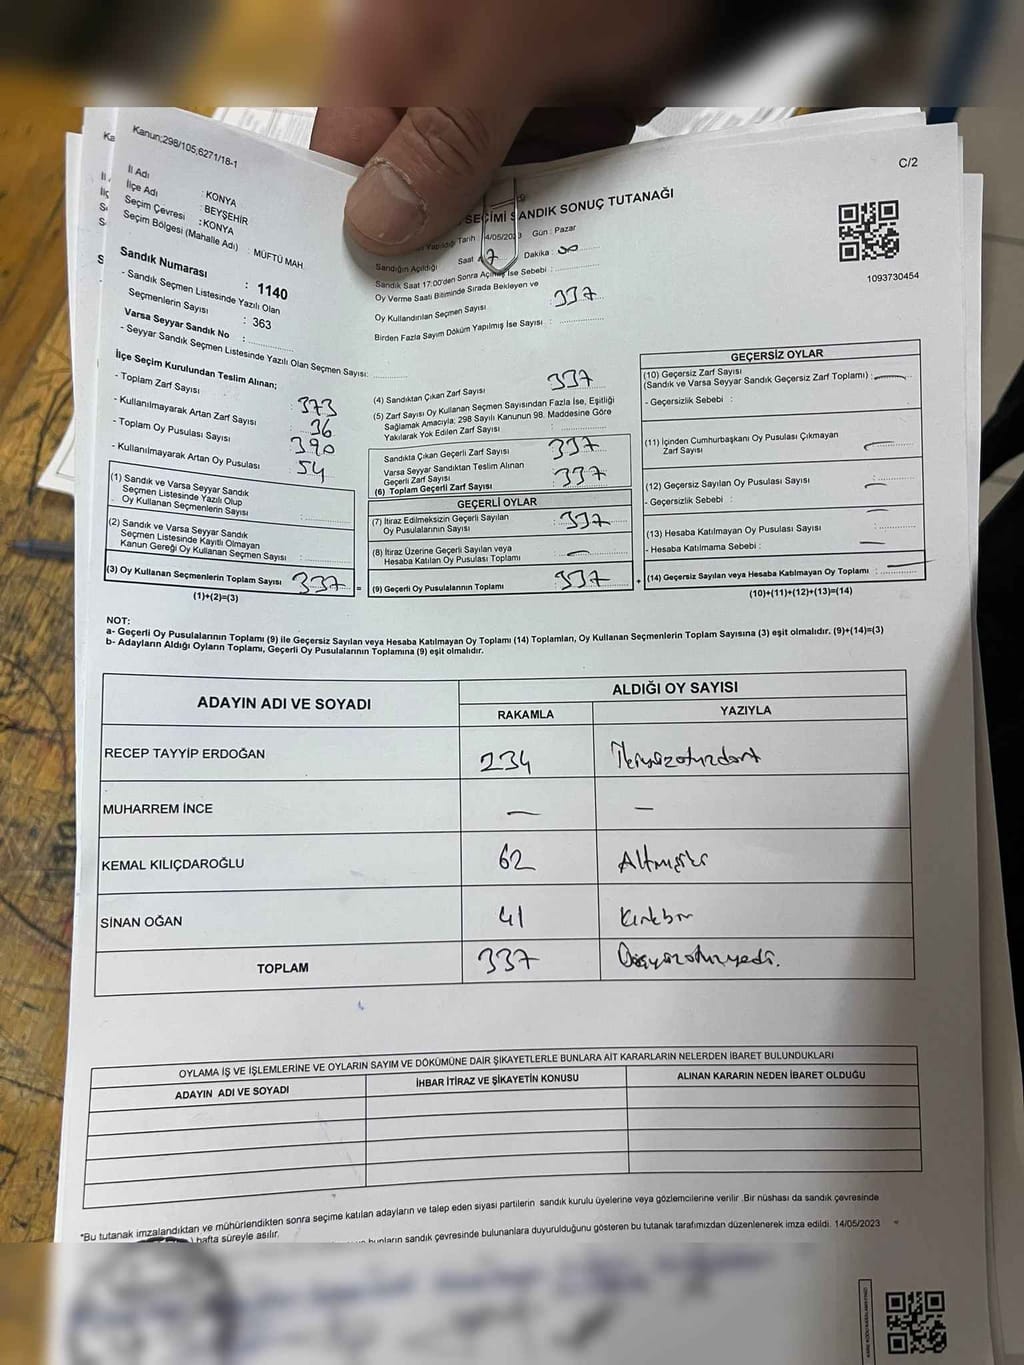 Kanun;298/105,6271/18-1
C/2
İl Adı : KONYA
İlçe Adı : BEYŞEHİR
Seçim Çevresi : KONYA
Seçim Bölgesi (Mahalle Adı) : MÜFTÜ MAH.
Sandık Numarası : 1140
- Sandık Seçmen Listesinde Yazılı Olan
Seçmenlerin Sayısı : 363
Varsa Seyyar Sandık No :
- Seyyar Sandık Seçmen Listesinde Yazılı Olan Seçmen Sayısı:
SEÇİMİ SANDIK SONUÇ TUTANAĞI
Yapıldığı Tarih : 14/05/2023 Gün : Pazar
Sandığın Açıldığı Saat : 17 Dakika : 00
Sandık Saat 17:00'den Sonra Açılmış İse Sebebi :
Oy Verme Saati Bitiminde Sırada Bekleyen ve
Oy Kullandırılan Seçmen Sayısı : 337
Birden Fazla Sayım Döküm Yapılmış İse Sayısı :
1093730454
İlçe Seçim Kurulundan Teslim Alınan;
- Toplam Zarf Sayısı : 373
- Kullanılmayarak Artan Zarf Sayısı : 36
- Toplam Oy Pusulası Sayısı : 390
- Kullanılmayarak Artan Oy Pusulası : 54
(1) Sandık ve Varsa Seyyar Sandık
Seçmen Listesinde Yazılı Olup
Oy Kullanan Seçmenlerin Sayısı :
(2) Sandık ve Varsa Seyyar Sandık
Seçmen Listesinde Kayıtlı Olmayan
Kanun Gereği Oy Kullanan Seçmen Sayısı :
(3) Oy Kullanan Seçmenlerin Toplam Sayısı : 337 =
(1)+(2)=(3)
(4) Sandıktan Çıkan Zarf Sayısı : 337
(5) Zarf Sayısı Oy Kullanan Seçmen Sayısından Fazla İse, Eşitliği
Sağlamak Amacıyla; 298 Sayılı Kanunun 98. Maddesine Göre
Yakılarak Yok Edilen Zarf Sayısı :
Sandıkta Çıkan Geçerli Zarf Sayısı : 337
Varsa Seyyar Sandıktan Teslim Alınan
Geçerli Zarf Sayısı
(6) Toplam Geçerli Zarf Sayısı : 337
GEÇERLİ OYLAR
(7) İtiraz Edilmeksizin Geçerli Sayılan
Oy Pusulalarının Sayısı : 337
(8) İtiraz Üzerine Geçerli Sayılan veya
Hesaba Katılan Oy Pusulası Toplamı : —
(9) Geçerli Oy Pusulalarının Toplamı : 337 +
GEÇERSİZ OYLAR
(10) Geçersiz Zarf Sayısı
(Sandık ve Varsa Seyyar Sandık Geçersiz Zarf Toplamı) : —
- Geçersizlik Sebebi :
(11) İçinden Cumhurbaşkanı Oy Pusulası Çıkmayan
Zarf Sayısı : —
(12) Geçersiz Sayılan Oy Pusulası Sayısı : —
- Geçersizlik Sebebi : —
(13) Hesaba Katılmayan Oy Pusulası Sayısı :
- Hesaba Katılmama Sebebi : —
(14) Geçersiz Sayılan veya Hesaba Katılmayan Oy Toplamı : —
(10)+(11)+(12)+(13)=(14)
NOT:
a- Geçerli Oy Pusulalarının Toplamı (9) ile Geçersiz Sayılan veya Hesaba Katılmayan Oy Toplamı (14) Toplamları, Oy Kullanan Seçmenlerin Toplam Sayısına (3) eşit olmalıdır. (9)+(14)=(3)
b- Adayların Aldığı Oyların Toplamı, Geçerli Oy Pusulalarının Toplamına (9) eşit olmalıdır.
ADAYIN ADI VE SOYADI
ALDIĞI OY SAYISI
RAKAMLA YAZIYLA
RECEP TAYYİP ERDOĞAN 234 İkiyüzotuzdört
MUHARREM İNCE — —
KEMAL KILIÇDAROĞLU 62 Altmışiki
SİNAN OĞAN 41 Kırkbir
TOPLAM 337 Üçyüzotuzyedi.
OYLAMA İŞ VE İŞLEMLERİNE VE OYLARIN SAYIM VE DÖKÜMÜNE DAİR ŞİKAYETLERLE BUNLARA AİT KARARLARIN NELERDEN İBARET BULUNDUKLARI
ADAYIN ADI VE SOYADI İHBAR İTİRAZ VE ŞİKAYETİN KONUSU ALINAN KARARIN NEDEN İBARET OLDUĞU
*Bu tutanak imzalandıktan ve mühürlendikten sonra seçime katılan adayların ve talep eden siyasi partilerin sandık kurulu üyelerine veya gözlemcilerine verilir .Bir nüshası da sandık çevresinde
) hafta süreyle asılır.
bunların sandık çevresinde bulunanlara duyurulduğunu gösteren bu tutanak tarafımızdan düzenlenerek imza edildi. 14/05/2023